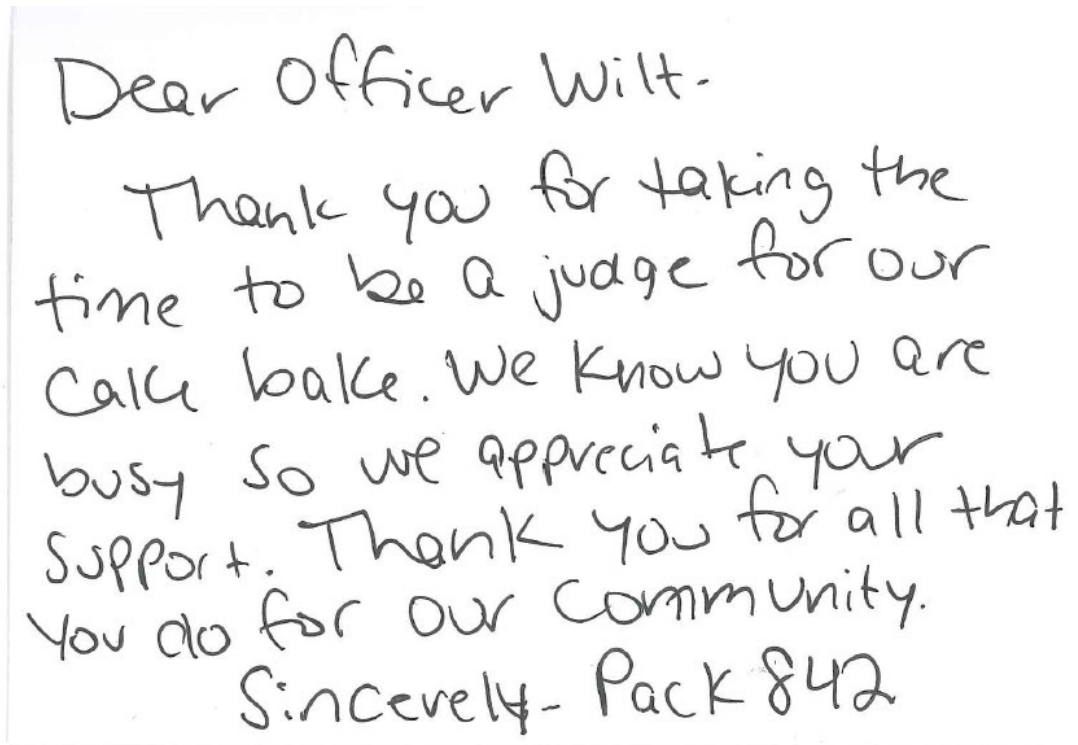 Dear Officer Wilt-
Thank you for taking the
time to be a judge for our
Cake bake. We know you are
busy so we appreciate your
support. Thank you for all that
you do for our community.
Sincerely- Pack 842